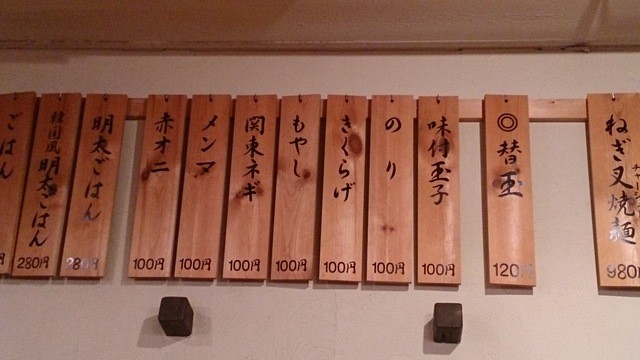 ねぎ叉焼麺
チャーシュー
980円
◎替玉
120円
味付玉子
100円
のり
100円
きくらげ
100円
もやし
100円
関東ネギ
100円
メンマ
100円
赤オニ
100円
明太ごはん
280円
韓国風明太ごはん
280円
ごはん
円